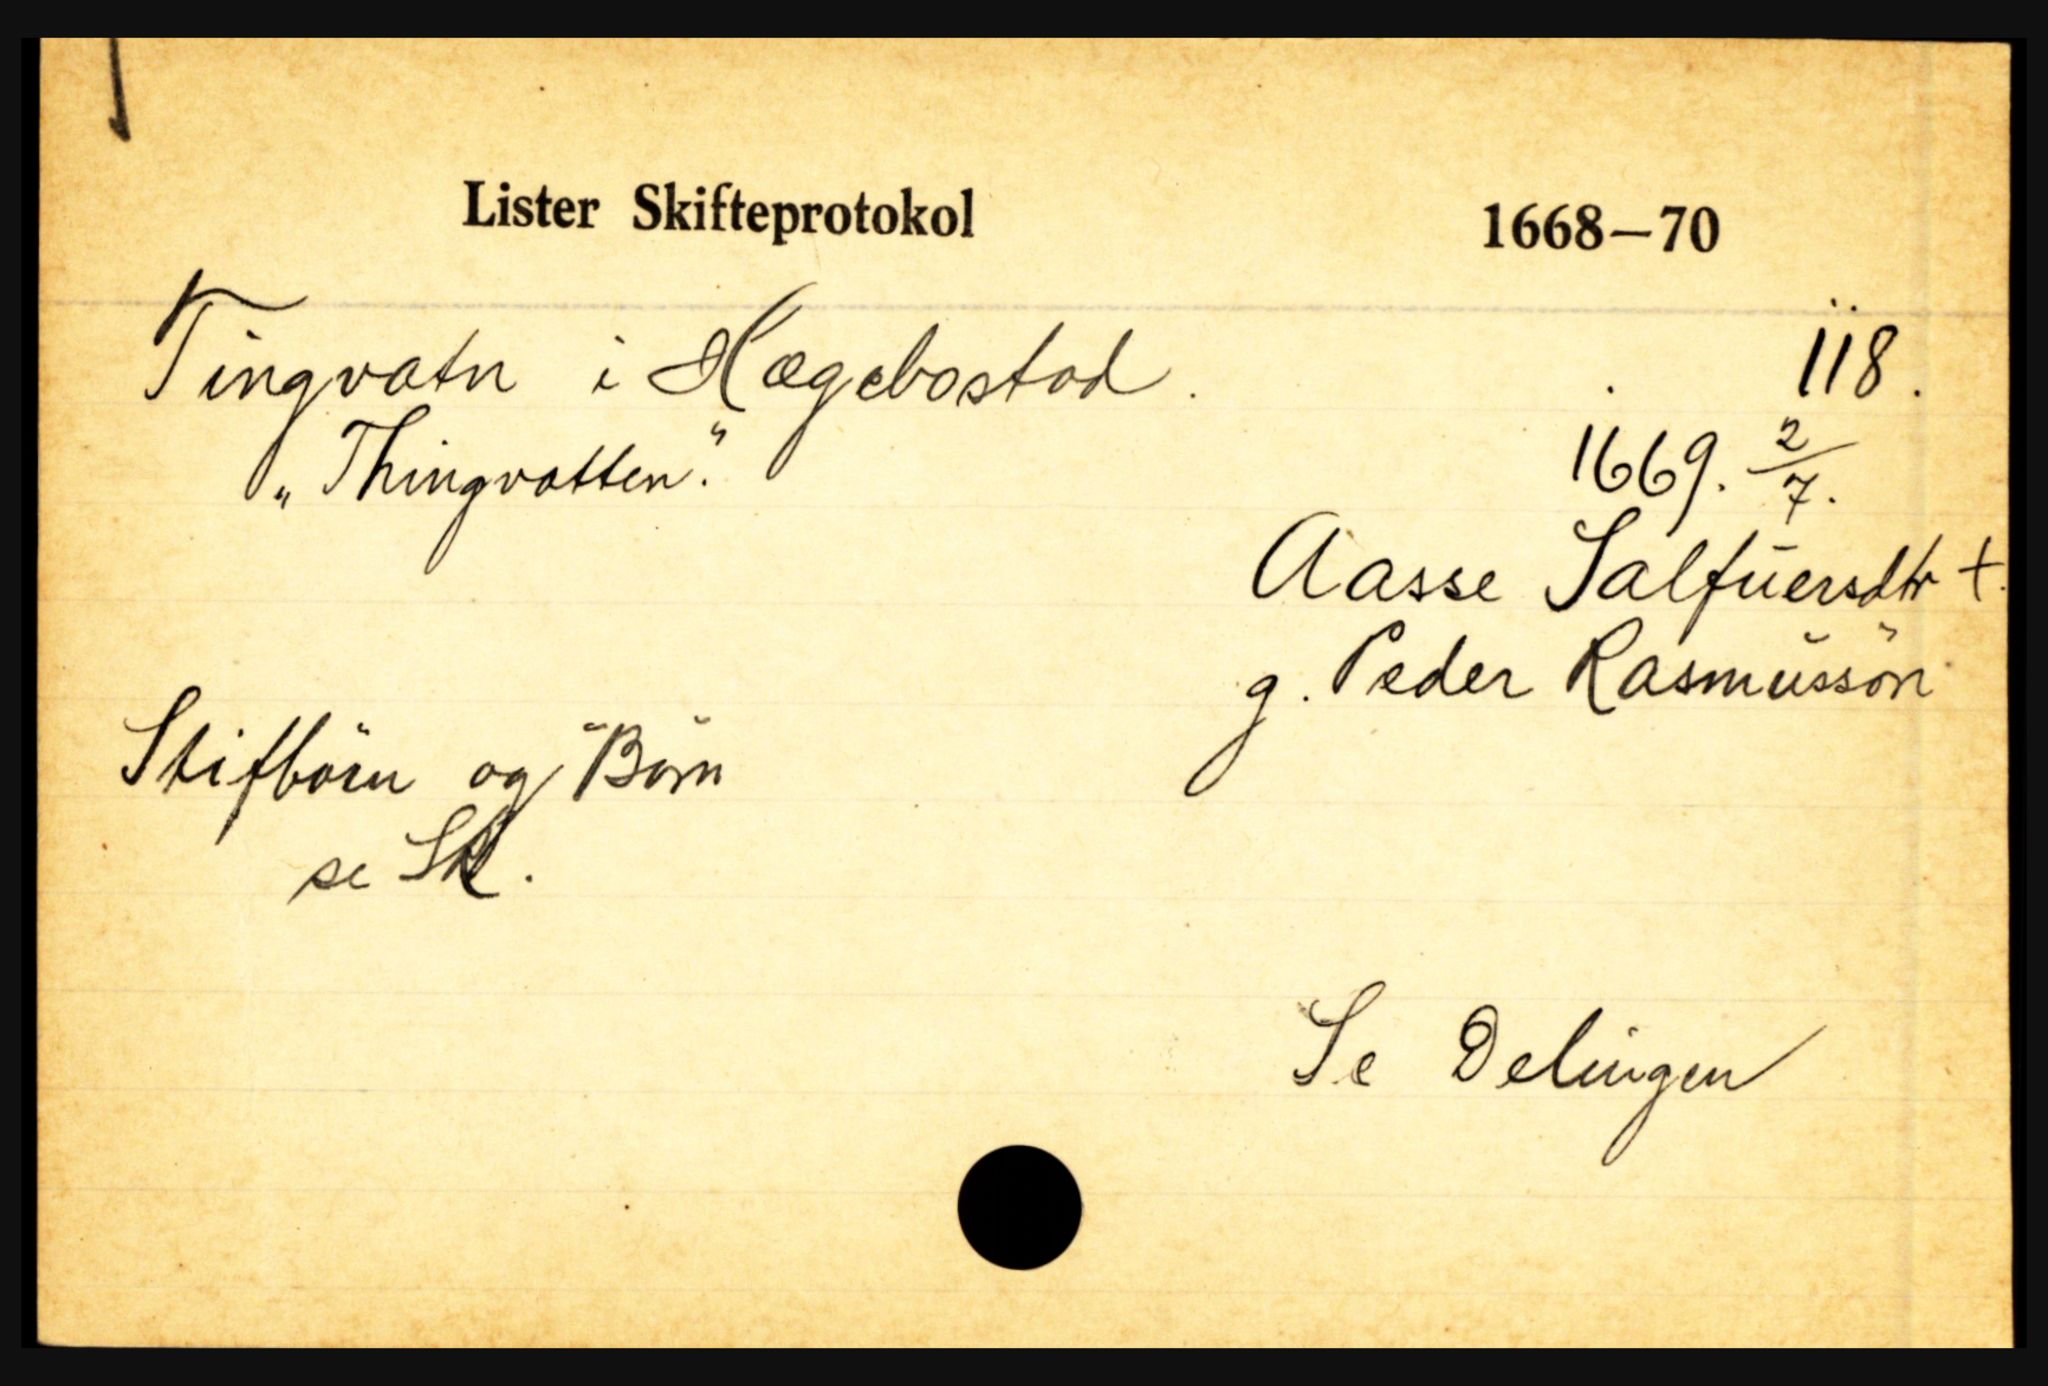 Lister Skifteprotokol 1668–70
Tingvatn i Hægebostad. 118.
„Thingvatten." 1669. 2/7.
Aasse Salfuersdtr +.
g. Peder Rasmussön
Stifbörn og Börn
se Sk.
Se Delingen